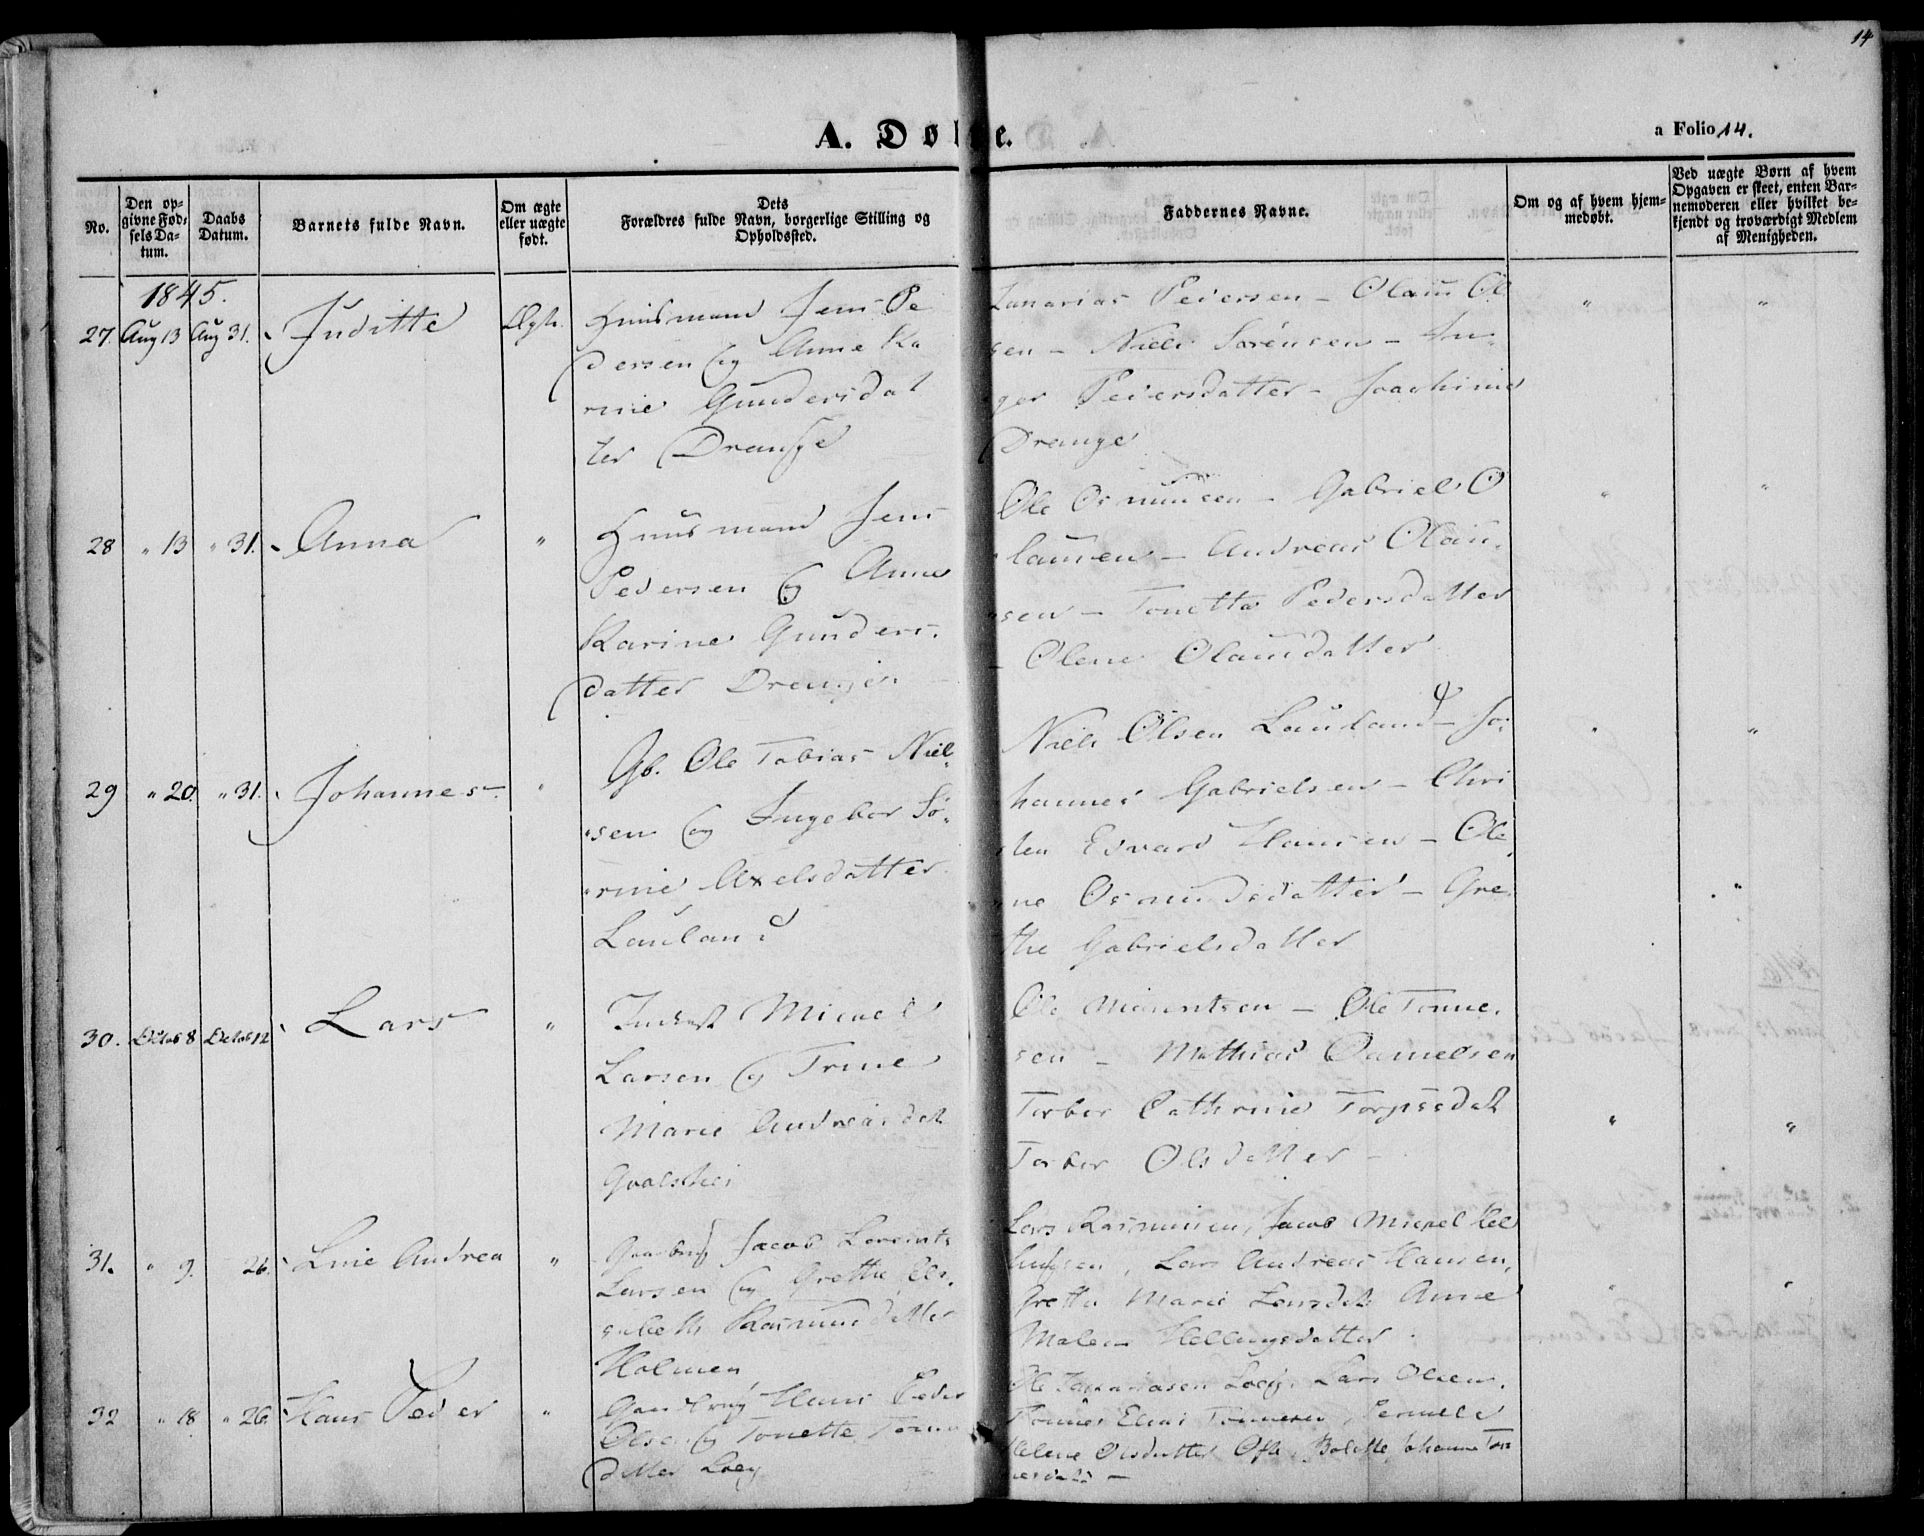 14
A. Døbte.
a Folio 14.
No.
Den op-
givne Fød-
sels Da-
tum.
Daabs
Datum.
Barnets fulde Navn.
Om ægte
eller uægte
født.
Dets
Forældres fulde Navn, borgerlige Stilling og
Opholdssted.
Faddernes Navne.
Om og af hvem hjem-
medøbt.
Ved uægte Børn af hvem
Opgaven er skeet, enten Bar-
nemoderen eller hvilket be-
kjendt og troværdigt Medlem
af Menigheden.
1845.
27. Aug 13 Aug 31. Juditte Ægte.
Huusmand Jens Pe
dersen og Anne Ka
rine Gundersdat
ter Drange
Zacarias Pedersen - Olaus Ol
sen - Niels Sørensen - In-
ger Pedersdatter - Joachime
Drange
" "
28 " 13 " 31. Anna "
Huusmand Jens
Pedersen og Anne
Karine Gunders.
datter Drange.
Ole Osmunsen - Gabriel O
lausen - Andreas Olau.
sen - Tonette Pedersdatter
- Olene Olausdatter
" "
29 " 20. " 31. Johannes "
Gb. Ole Tobias Niel
sen og Ingebor Sø-
rine Axelsdatter
Lauland
Niels Olsen Lauland - Jo-
hannes Gabrielsen - Chri
sten Edvard Hansen - Ole
ne Osmundsdatter - Gre
the Gabrielsdatter
" "
30. Octob 8 Octob 12 Lars "
Inderst Michel
Larsen og Trine
Marie Andreasdat
Ole - Ole Tønne.
sen - Mathias Danielsen
Torbor Cathrine
Torbor Olsdatter -
" "
31. " 9. 26. Line Andrea "
Jacob Lorents
Larsen og Grethe Eli.
sabeth Rasmusdatter
Holmen
Lars Rasmusen, Jacob Michel
, Lars Andreas Hansen,
Grethe Marie Anne
Malene
" "
32 " 18 " 26. Hans Peder "
Hans Peder
Olsen og Tonette
datter
Lars Olsen,
Tønnes Elias Tønnesen, Pernele
Helene Olsdatter Johanne Tøn
nesdatt -